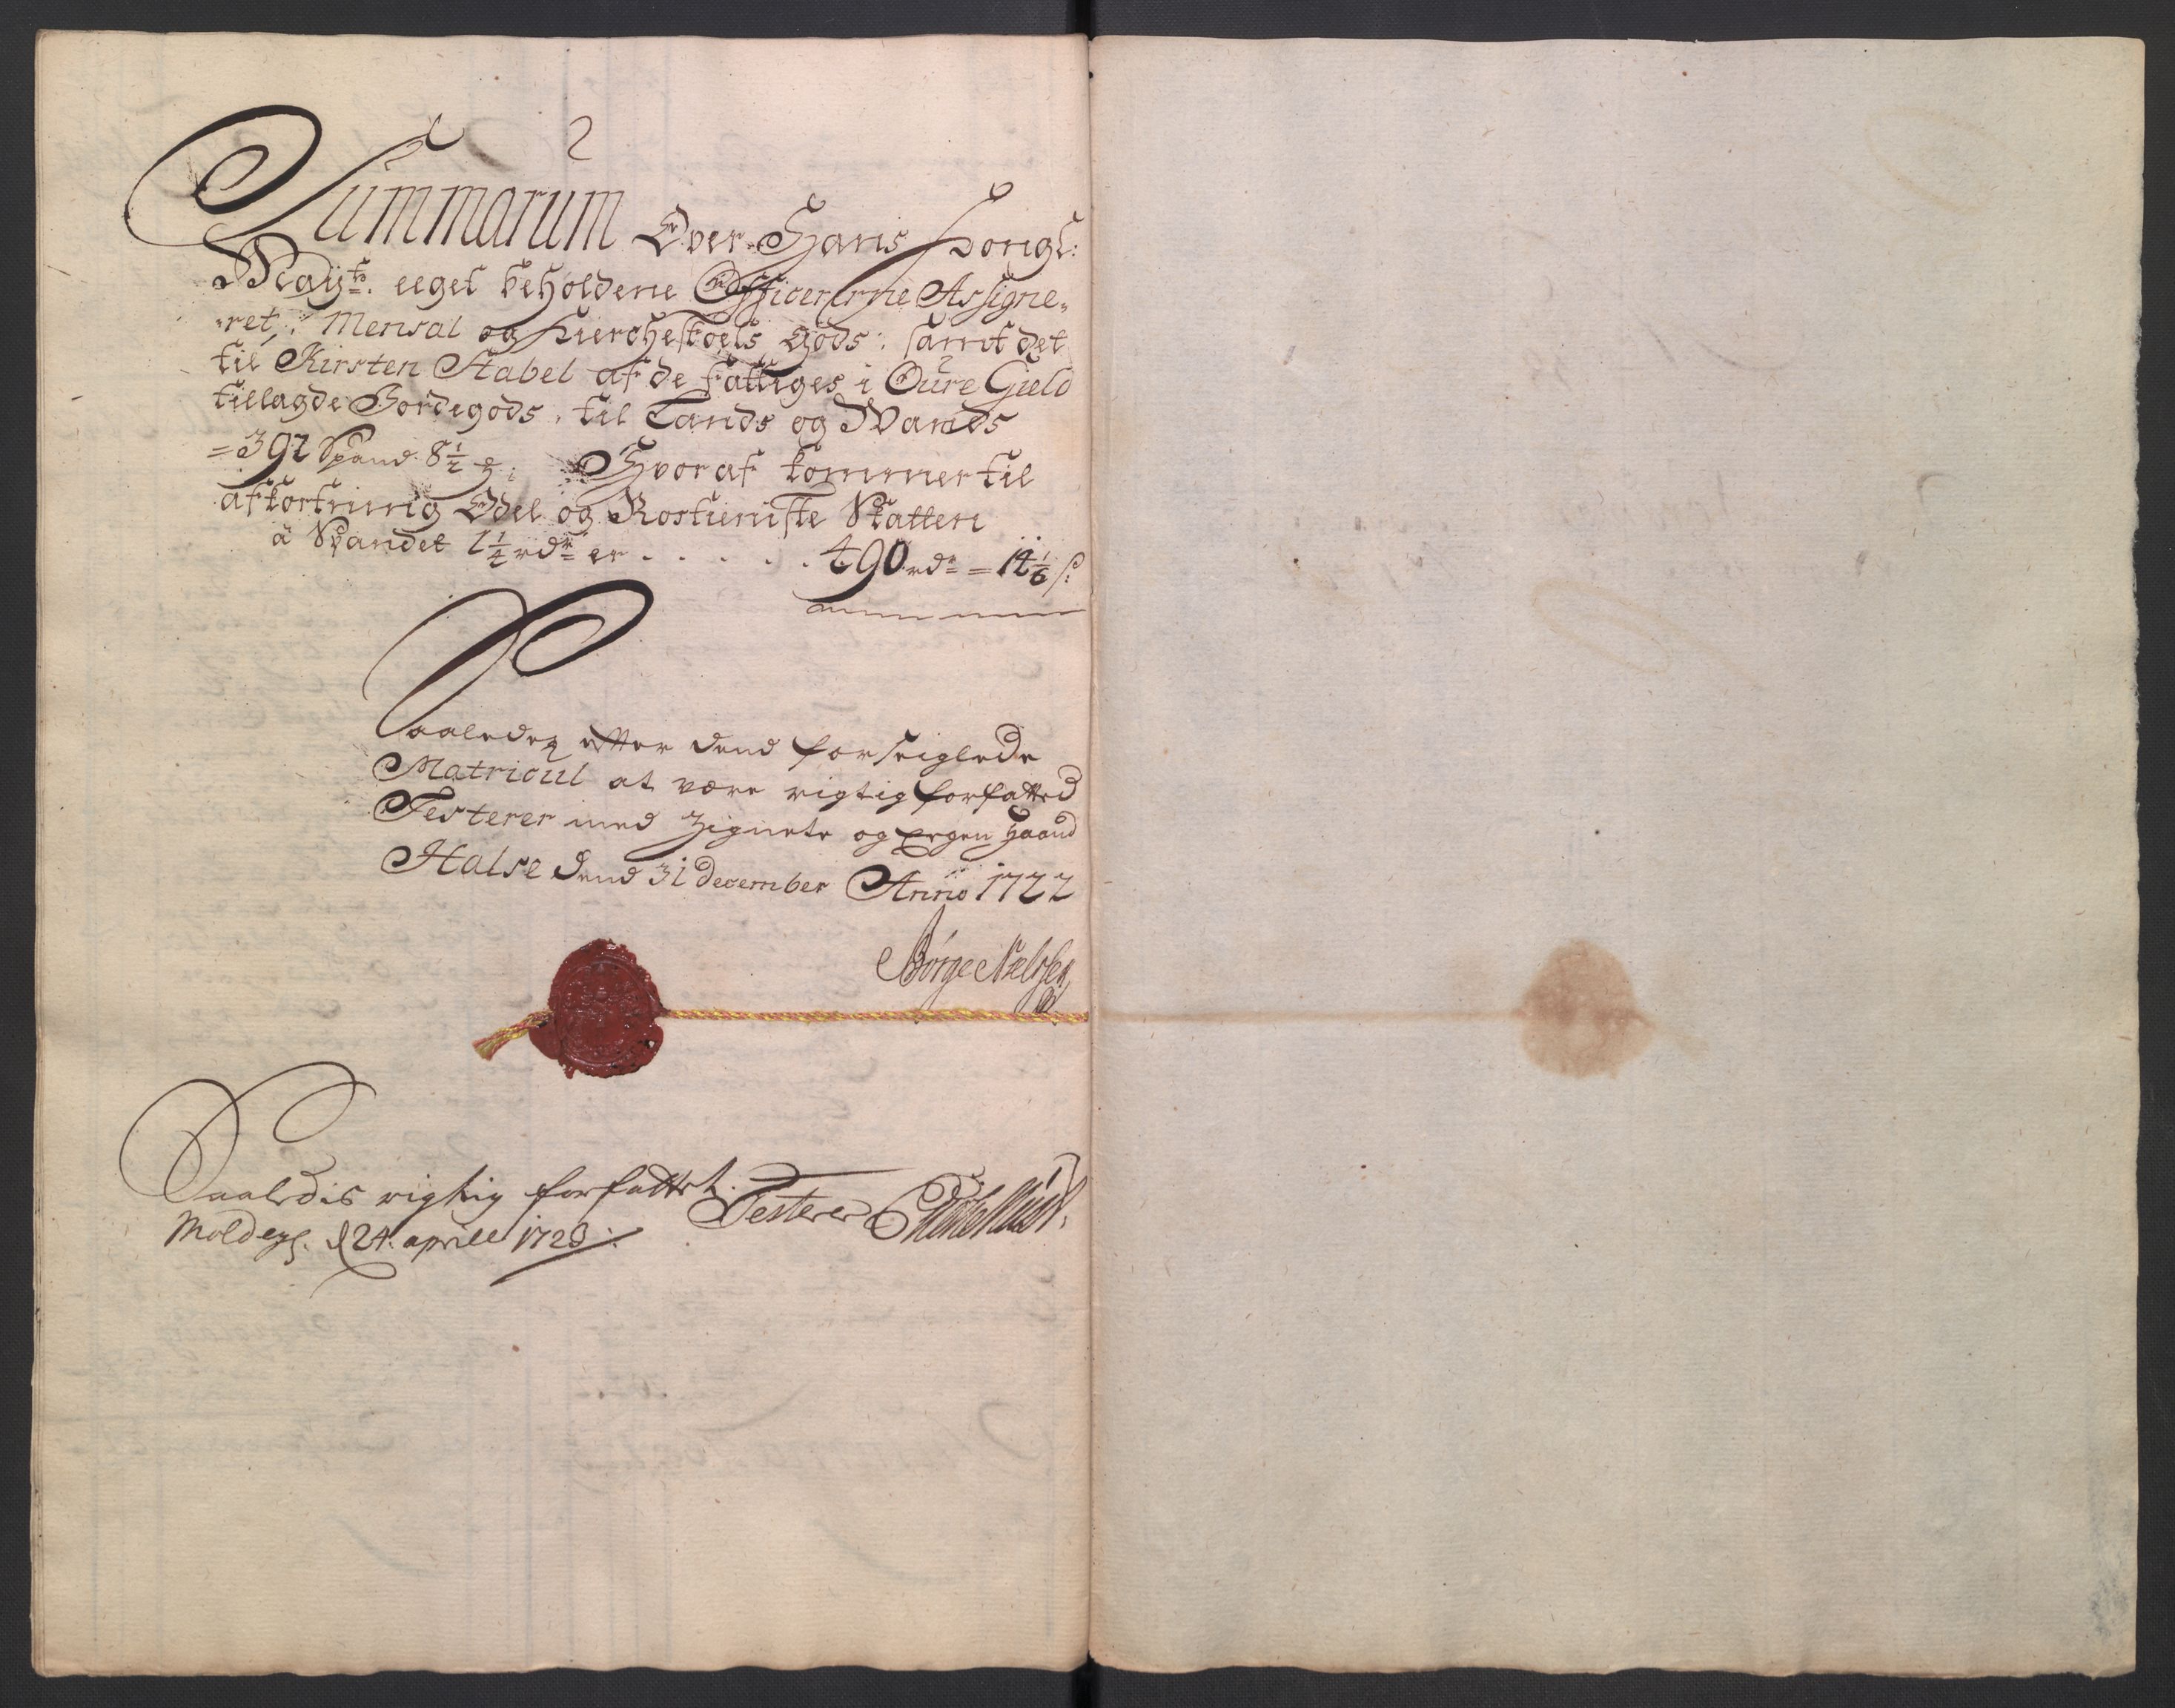 2
Summarum Over Hans Kongl:
Mayts. eeget beholdene Officererne Assigne-
-ret, Mensal og Kierchestoels Gods, samt det
til Kirsten Stabel af de fattiges i Oure Gield
tillagde Jordegods, til Lands og Wands
=392 Spand 8½ : Hvoraf kommer til
afkortning Odel og Rostieniste Skatten
a Spandet 1¼ rdr er . . . . . 490 rdr = 14 1/6 s:
Saaledes efter dend forseiglede
Matricul at være rigtig forfatted
Testerer med Zignete og Eegen Haand
Halse dend 31 December Anno 1722
Børge Nielssen
Saaledis rigtig forfattet. Testerer
Molde d 24 aprill 1723: